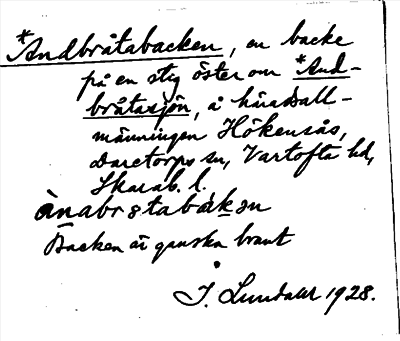 *Andbråtabacken, en backe
på en stig öster om *And-
bråtasjön, å häradsall-
männingen Hökensås,
Daretorps sn, Vartofta hd,
Skarab. l.
ànabrotabákən
Backen är ganska brant
J. Lundahl 1928.